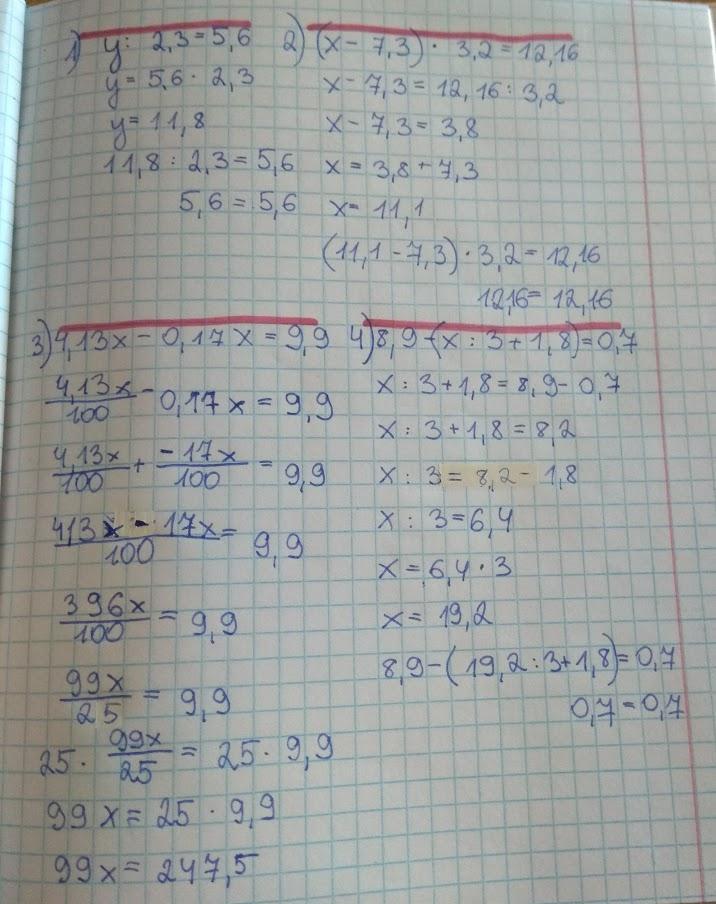 1) y : 2,3 = 5,6
y = 5,6 · 2,3
y = 11,8
11,8 : 2,3 = 5,6
5,6 = 5,6
2) (x - 7,3) · 3,2 = 12,16
x - 7,3 = 12,16 : 3,2
x - 7,3 = 3,8
x = 3,8 + 7,3
x = 11,1
(11,1 - 7,3) · 3,2 = 12,16
12,16 = 12,16
3) 4,13x - 0,17x = 9,9
4,13x/100 - 0,17x = 9,9
4,13x/100 + -17x/100 = 9,9
413x - 17x/100 = 9,9
396x/100 = 9,9
99x/25 = 9,9
25 · 99x/25 = 25 · 9,9
99x = 25 · 9,9
99x = 247,5
4) 8,9 - (x : 3 + 1,8) = 0,7
x : 3 + 1,8 = 8,9 - 0,7
x : 3 + 1,8 = 8,2
x : 3 = 8,2 - 1,8
x : 3 = 6,4
x = 6,4 · 3
x = 19,2
8,9 - (19,2 : 3 + 1,8) = 0,7
0,7 = 0,7